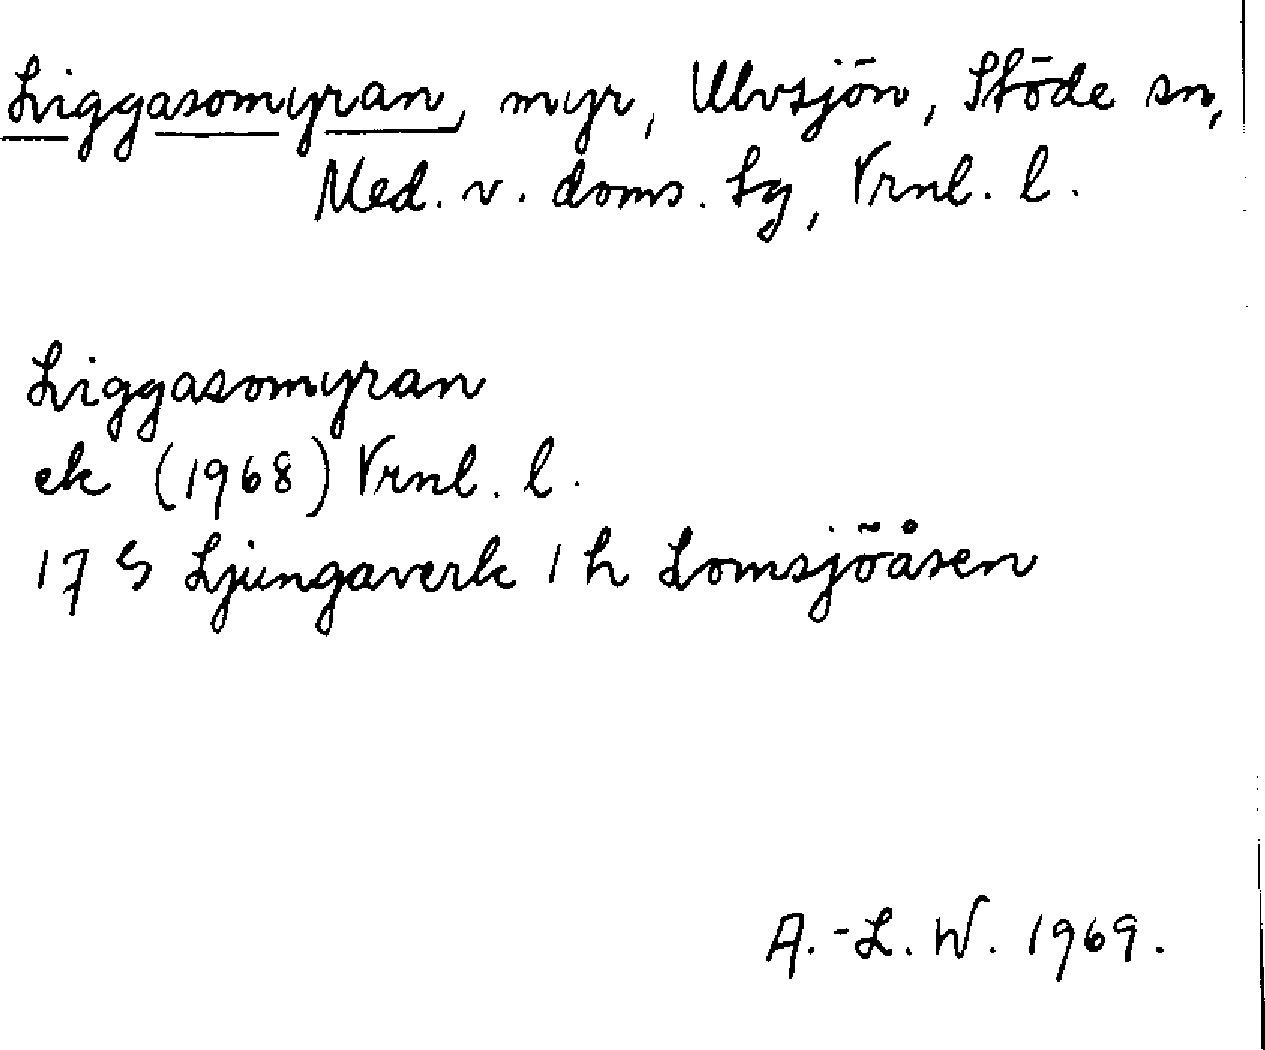 Liggasomyran, myr, Ulvsjön, Stöde sn,
Med. v. doms. Lg, Vrnl. l.
Liggasomyran
ek (1968) Vrnl. l.
17 S Ljungaverk 1 h Lomsjöåsen
A.-L. W. 1969.